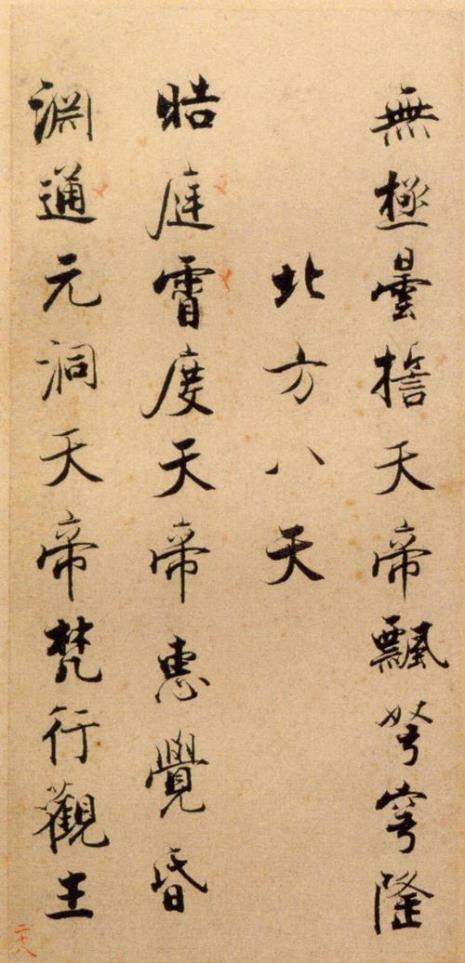 無極曇誓天帝飄弩穹隆
北方八天
皓庭霄度天帝惠覺昏
淵通元洞天帝梵行觀生
二十八